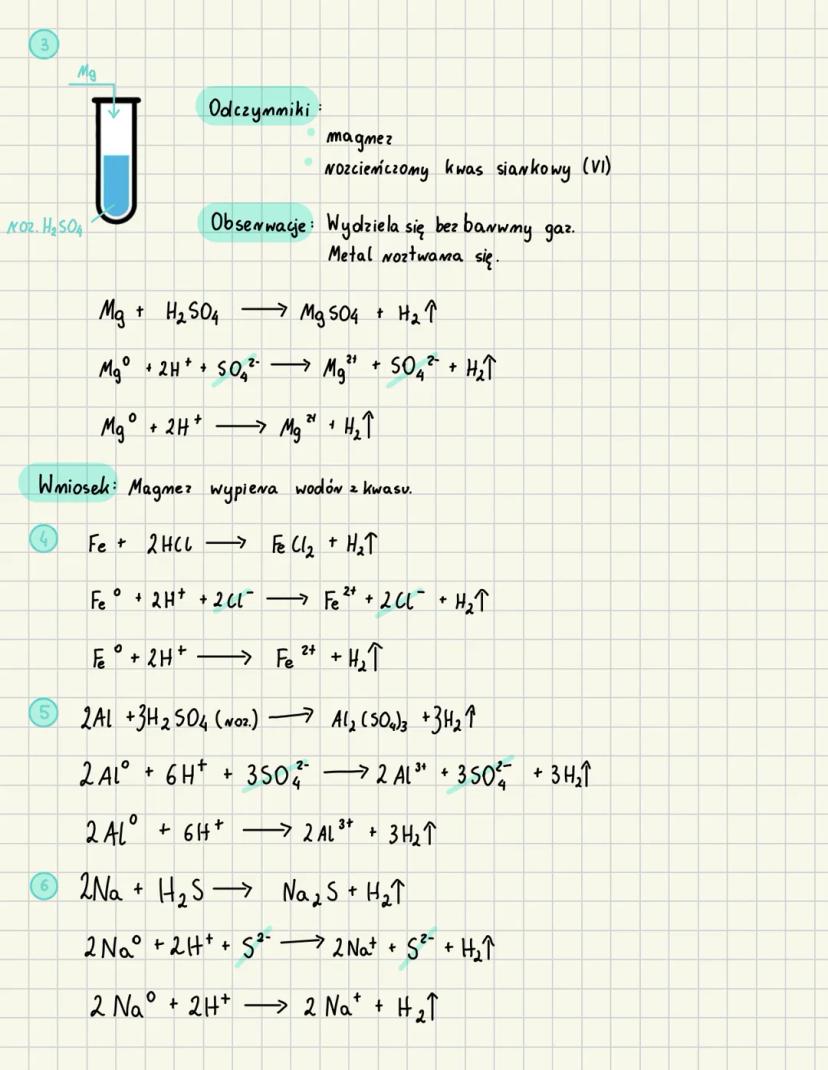 3
Mg
Odczynniki:
magnez
rozcieńczony kwas siarkowy (VI)
roz. H₂SO₄
Obserwacje: Wydziela się bez barwny gaz.
Metal roztwarza się.
Mg + H₂SO₄ ⟶ MgSO₄ + H₂↑
Mg⁰ + 2H⁺ + SO₄²⁻ ⟶ Mg²⁺ + SO₄²⁻ + H₂↑
Mg⁰ + 2H⁺ ⟶ Mg²⁺ + H₂↑
Wniosek: Magnez wypiera wodór z kwasu.
4 Fe + 2HCl ⟶ FeCl₂ + H₂↑
Fe⁰ + 2H⁺ + 2Cl⁻ ⟶ Fe²⁺ + 2Cl⁻ + H₂↑
Fe⁰ + 2H⁺ ⟶ Fe²⁺ + H₂↑
5 2Al + 3H₂SO₄ (roz.) ⟶ Al₂(SO₄)₃ + 3H₂↑
2Al⁰ + 6H⁺ + 3SO₄²⁻ ⟶ 2Al³⁺ + 3SO₄²⁻ + 3H₂↑
2Al⁰ + 6H⁺ ⟶ 2Al³⁺ + 3H₂↑
6 2Na + H₂S ⟶ Na₂S + H₂↑
2Na⁰ + 2H⁺ + S²⁻ ⟶ 2Na⁺ + S²⁻ + H₂↑
2Na⁰ + 2H⁺ ⟶ 2Na⁺ + H₂↑